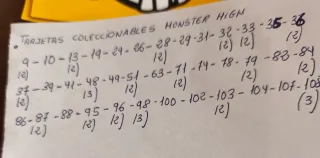 • TARJETAS COLECCIONABLES MONSTER HIGH
9-10-13-19-24-26-28-29-31-32-33-35-36
(2) (2) (2) (2) (2) (2)
37-39-41-48-49-51-63-71-74-78-79-82-84
(2) (3) (2) (2) (2) (2)
86-87-88-95-96-98-100-102-103-104-107-108
(2) (2) (2) (3) (2) (3)